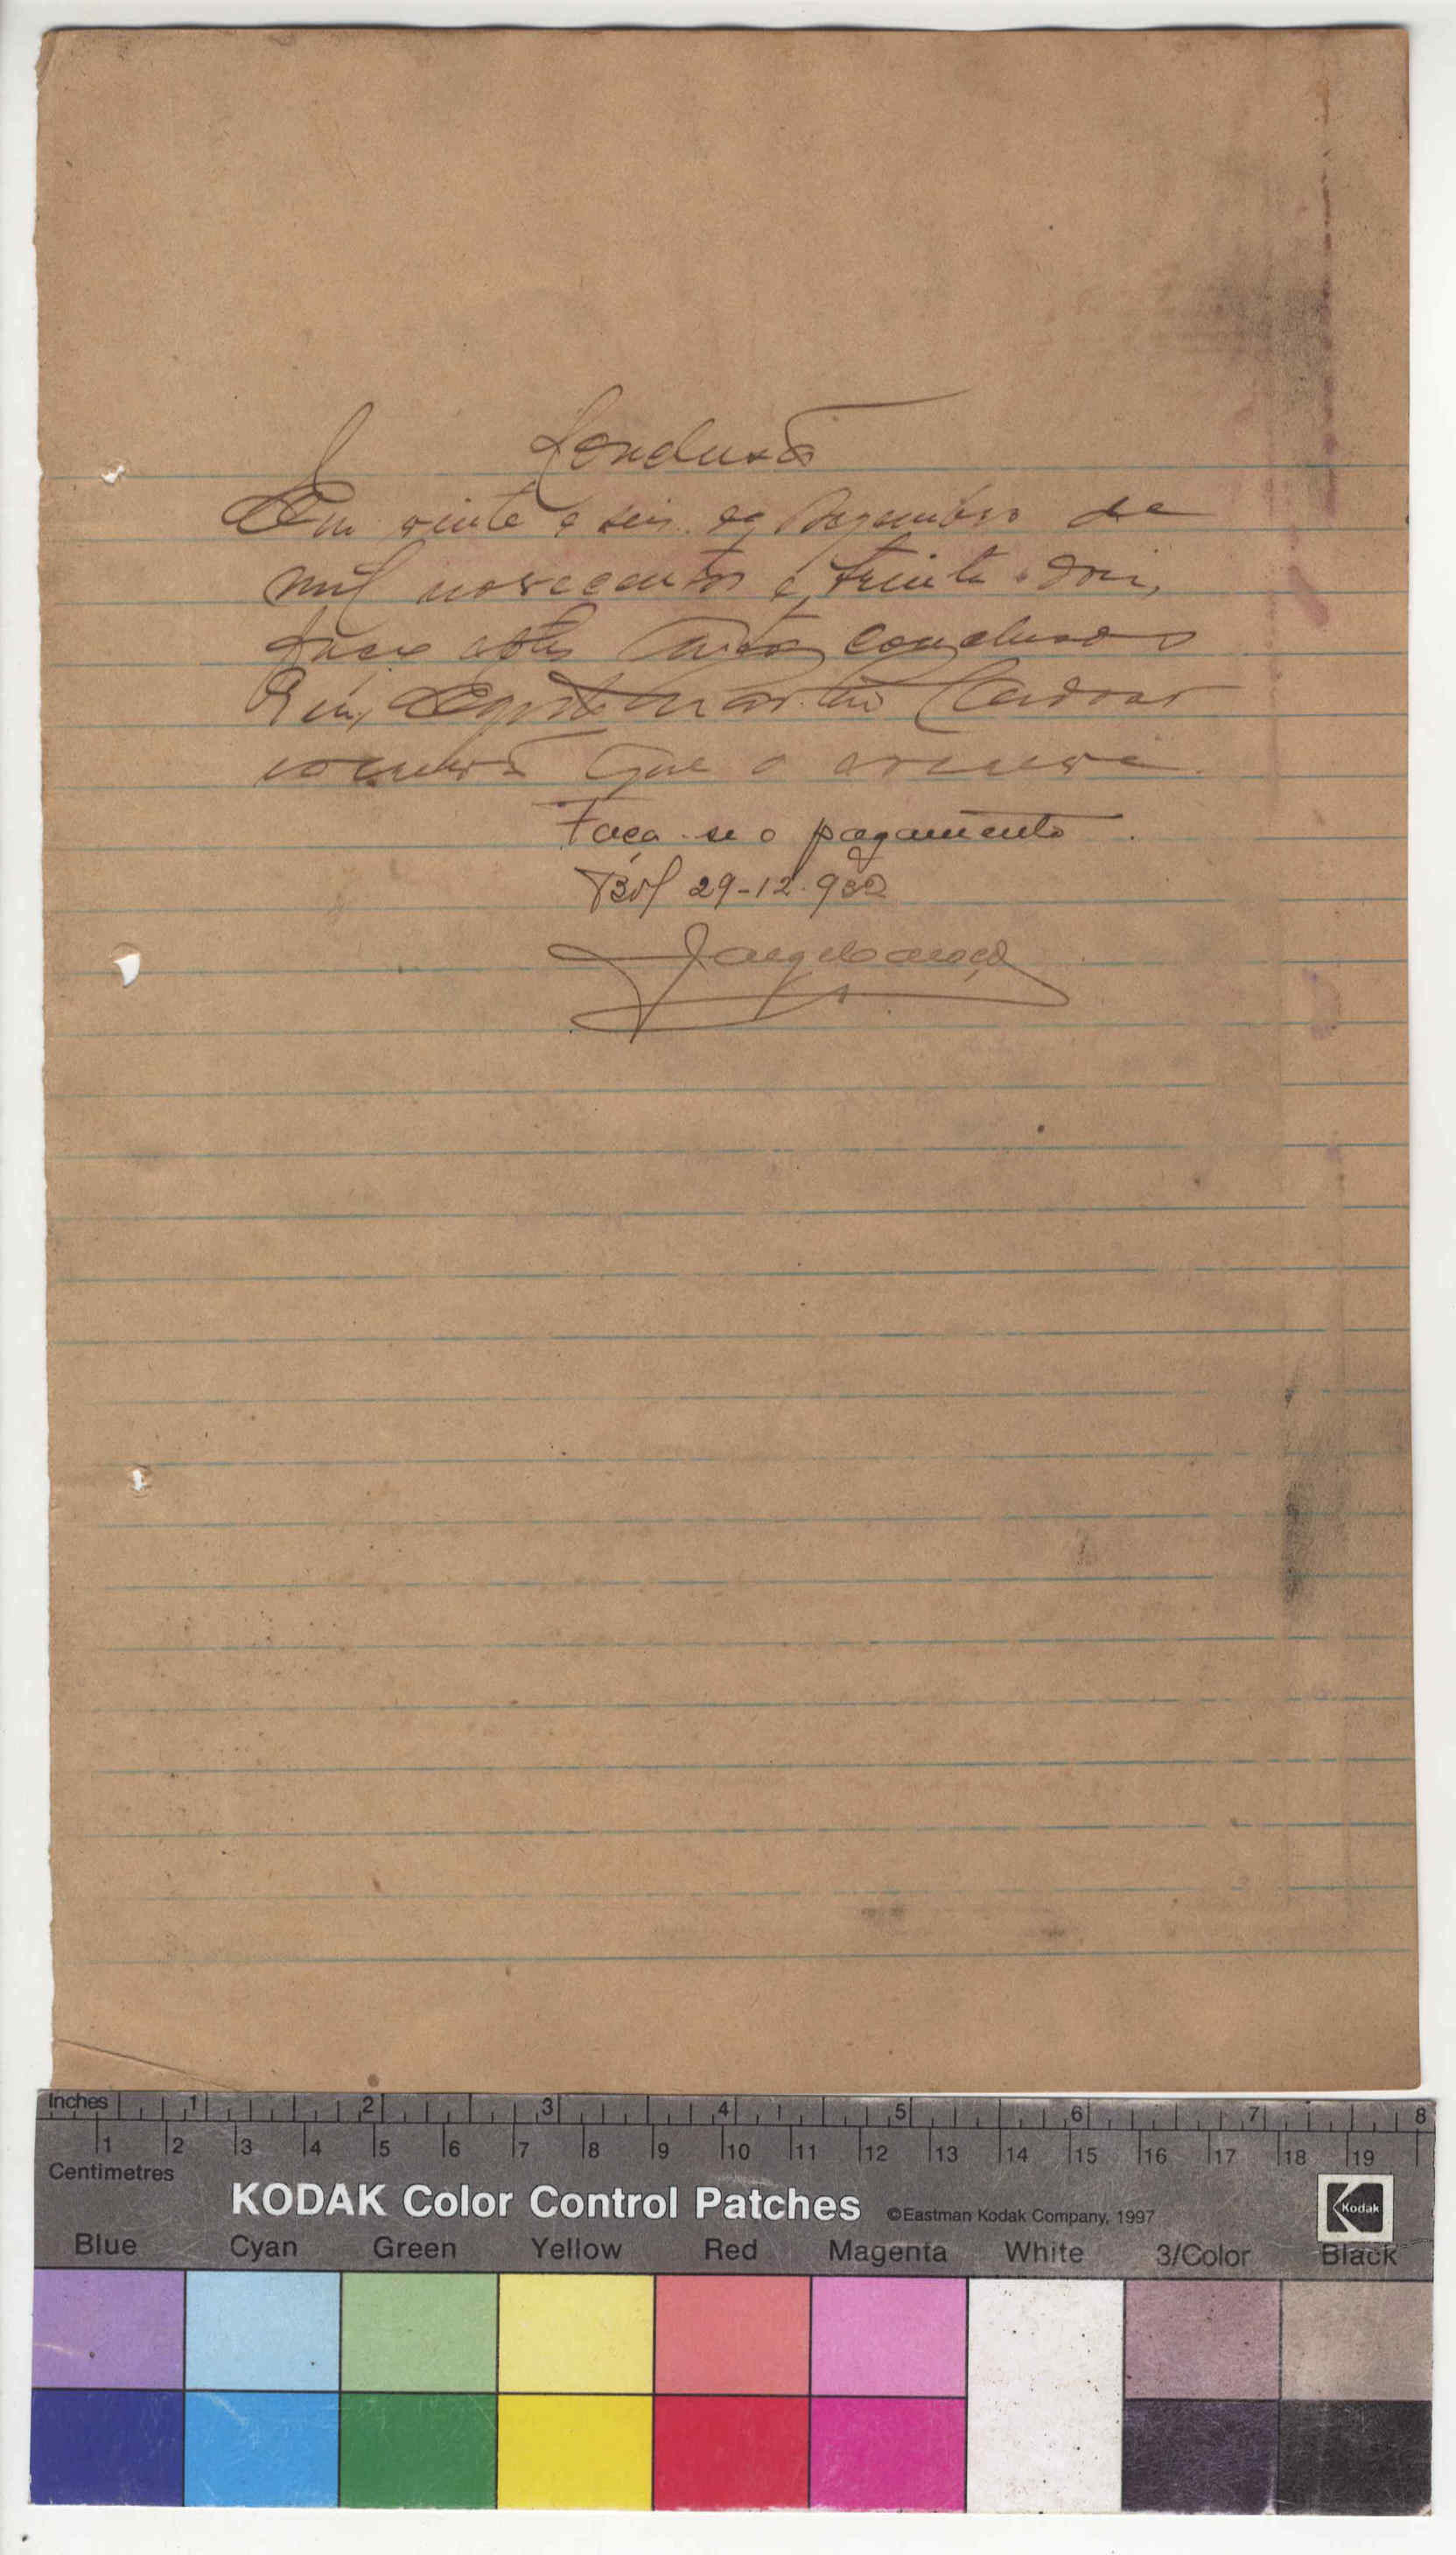 Conclusão
Em vinte e seis de Dezembro de
mil novecentos e trinta e dois,
faço estes autos conclusos
Eu, Martins Cardoso
escrivão que o escrevi.
Faça-se o pagamento.
29-12-932
Inches 1 2 3 4 5 6 7 8
1 2 3 4 5 6 7 8 9 10 11 12 13 14 15 16 17 18 19
Centimetres
KODAK Color Control Patches ©Eastman Kodak Company, 1997 Kodak
Blue Cyan Green Yellow Red Magenta White 3/Color Black